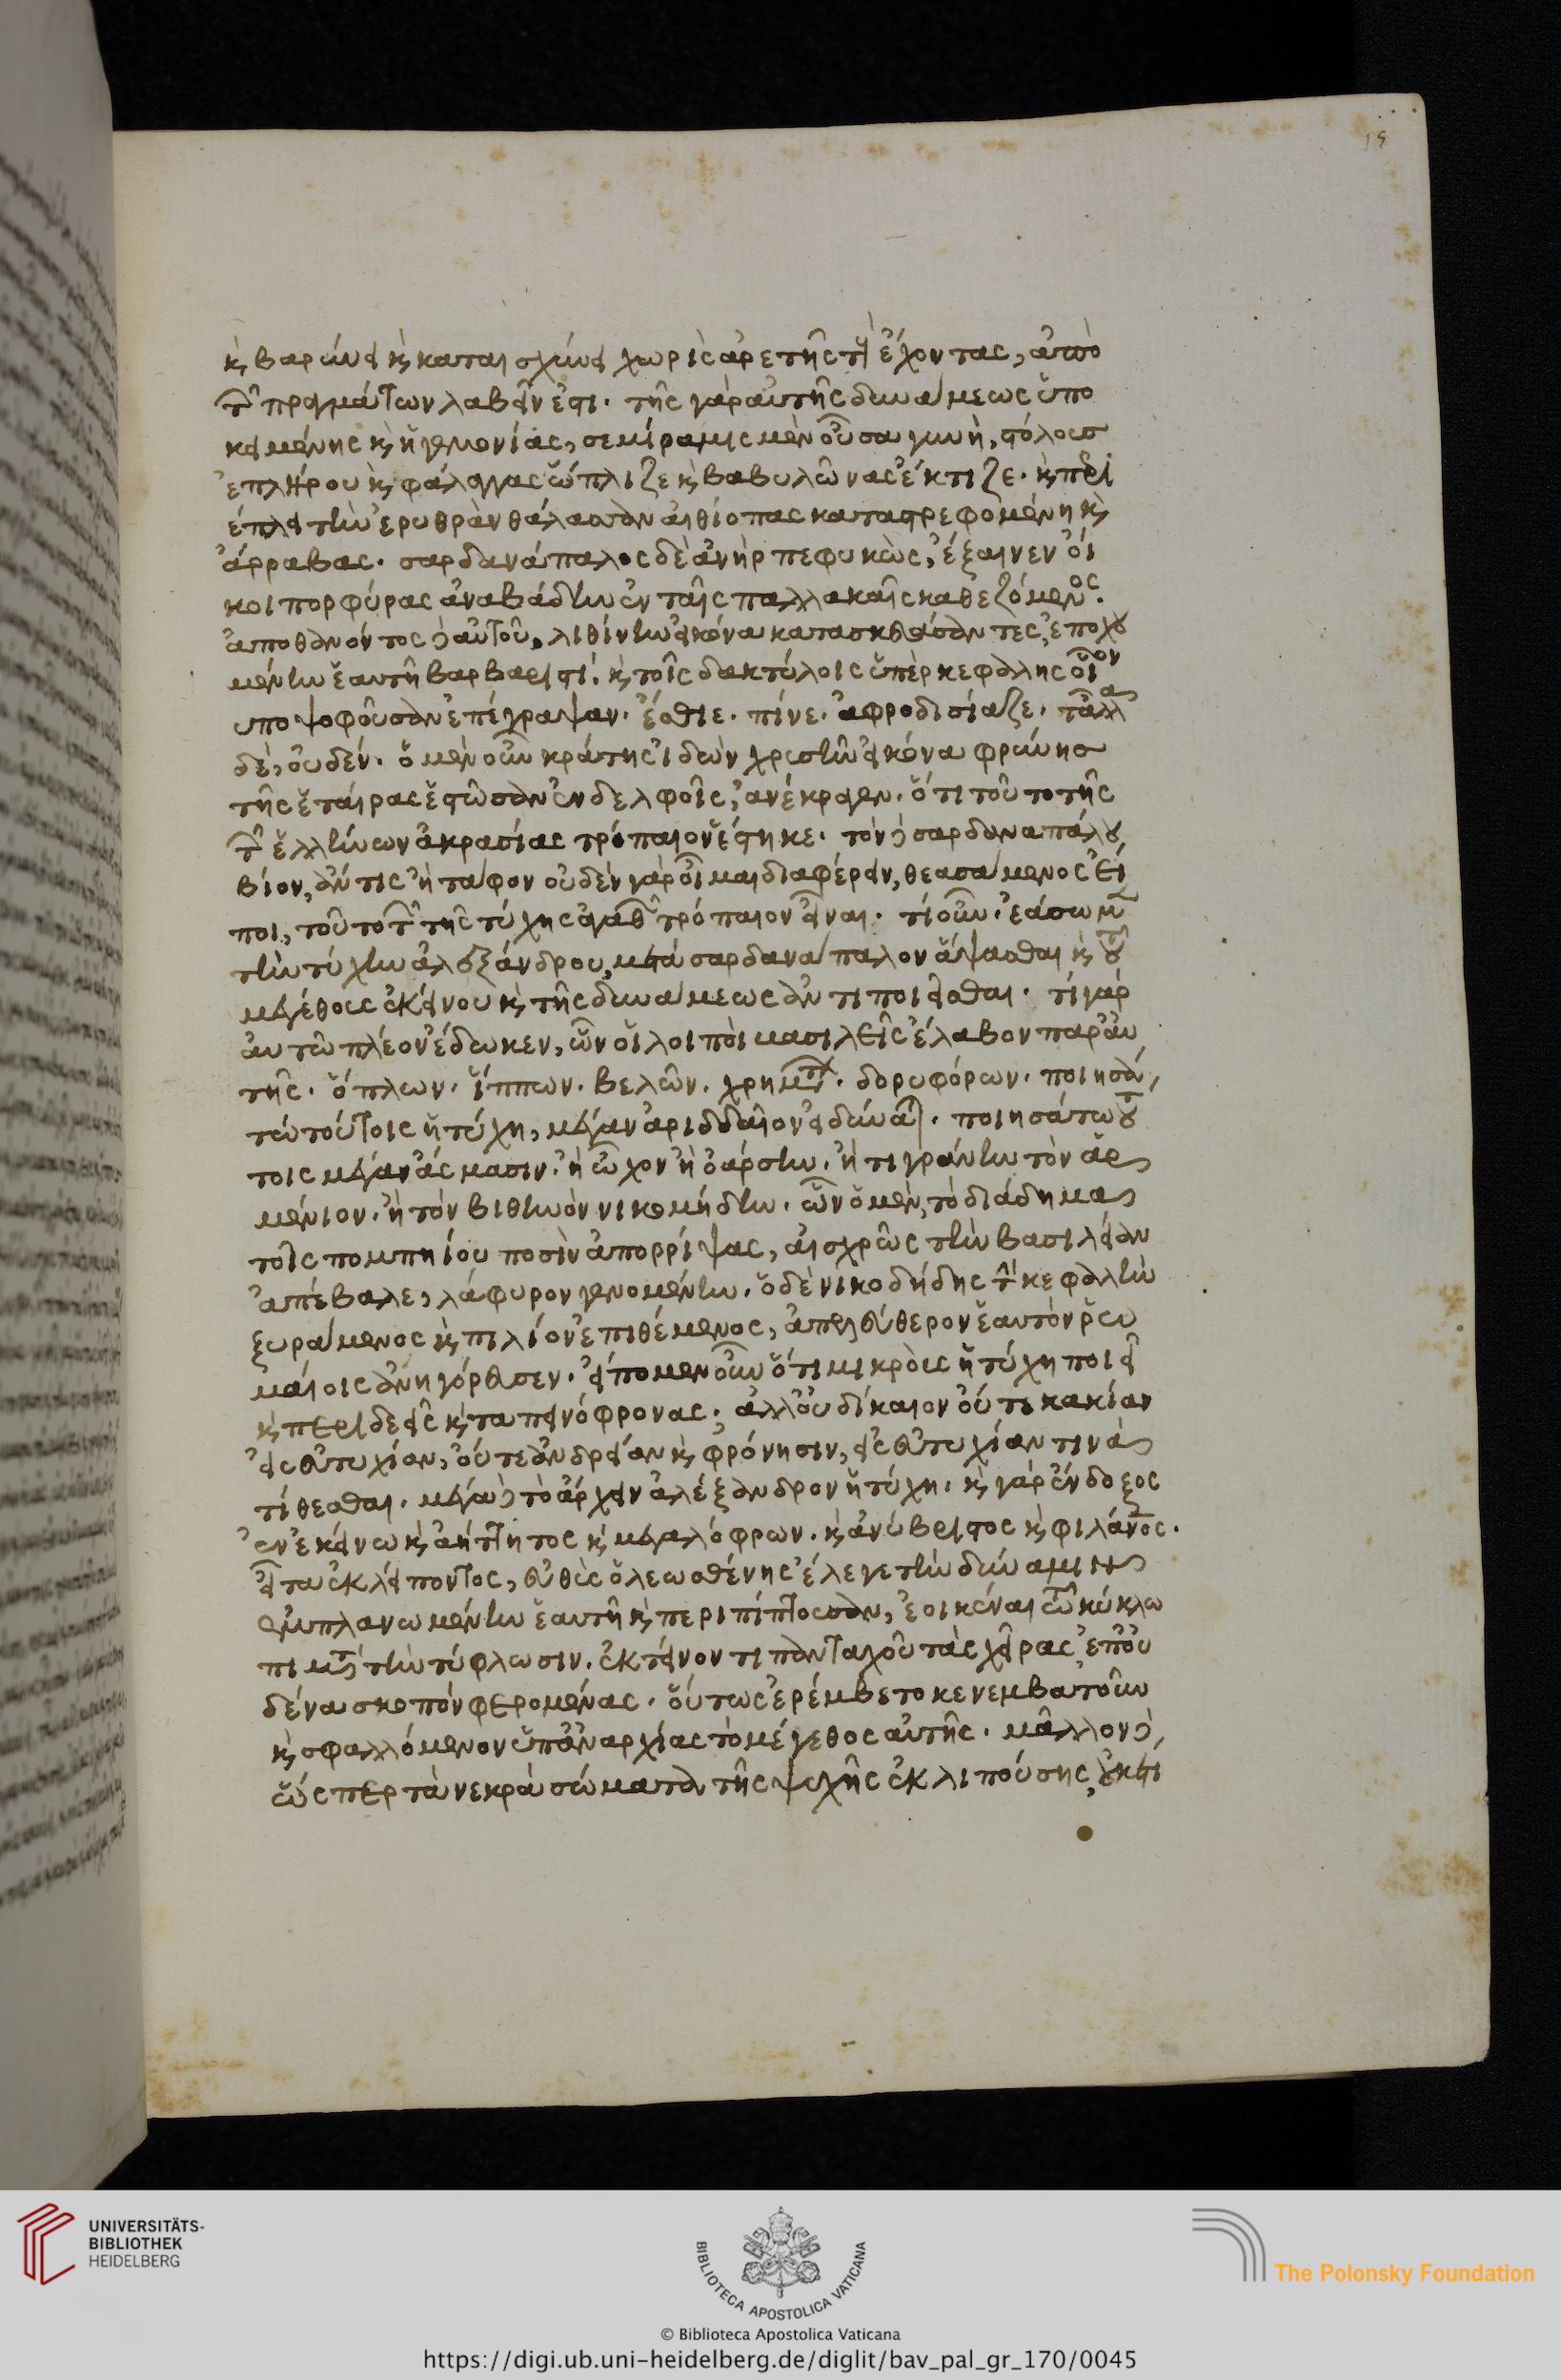 19
κ̀ βαρύνει κ̀ καταισχύνει χωρὶς ἀρετῆς τ̀ ἔχοντας, ἀπὸ
τ̑ πραγμάτων λαβεῖν ἐστι· τῆς γὰρ αὐτῆς δυνάμεως ὑπο
κειμένης κ̀ ἡγεμονίας, σεμίραμις μὲν οὖσα γυνὴ, στόλους
ἐπλήρου κ̀ φάλαγγας ὥπλιζε κ̀ βαβυλῶνας ἔκτιζε· κ̀ περὶ
έπλει τὴν ἐρυθρὰν θάλασσαν αἰθίοπας καταστρεφομένη κ̀
ἄρραβας· σαρδανάπαλος δὲ ἀνὴρ πεφυκὼς, ἔξαινεν οἴ
κοι πορφύρας ἀναβάδην ἐν ταῖς παλλακαῖς καθεζόμενος.
ἀποθανόντος δ αὐτοῦ, λιθίνην εἰκόνα κατασκευάσαντες, ἐπορχου
μένην ἑαυτῇ βαρβαριστί. κ̀ τοῖς δακτύλοις ὑπὲρ κεφαλῆς οἷον
υποψοφοῦσαν ἐπέγραψαν· ἔσθιε· πίνε· ἀφροδισίαζε· τἆλλα
δὲ, οὐδέν· ὁ μὲν οὖν κράτης ἰδὼν χρυσῆν εἰκόνα φρύνης
τῆς ἑταίρας ἑστῶσαν ἐν δελφοῖς, ἀνέκραγεν· ὅτι τοῦτο τῆς
τ̑ ἑλλήνων ἀκρασίας τρόπαιον ἕστηκε· τὸν δ σαρδαναπάλου
βίον, ἄν τις ἢ τάφον οὐδὲν γὰρ οἶμαι διαφέρειν, θεασάμενος εἴ
ποι, τοῦτο τ̑ τῆς τύχης ἀγαθ̑ τρόπαιον εἶναι· τί οὖν· ἐάσωμεν
τὴν τύχην ἀλεξάνδρου μετὰ σαρδανάπαλον ἅψασθαι κ̀ τοῦ
μεγέθους ἐκείνου κ̀ τῆς δυνάμεως ἀντιποιεῖσθαι· τί γὰρ
αὐτῷ πλέον ἔδωκεν, ὧν οἱ λοιποὶ βασιλεῖς ἔλαβον παρ' αὐ
τῆς· ὅπλων· ἵππων· βελῶν· χρημάτων· δορυφόρων· ποιησά
τω τούτοις ἡ τύχη, μέγαν ἀριδδαῖον εἰ δύναται· ποιησάτω τού
τοις μέγαν ἄς μασιν· ἢ ὦχον ἢ ὀάρσην· ἢ τιγράνην τὸν ἀρ
μένιον· ἢ τὸν βιθυνὸν νικομήδην· ὧν ὁ μὲν, τὸ διάδημα
τοῖς πομπηίου ποσὶν ἀπορρίψας, αἰσχρῶς τὴν βασιλείαν
ἀπέβαλε, λάφυρον γενομένην· ὁ δὲ νικοδήδης τ̀ κεφαλὴν
ξυράμενος κ̀ πιλίον ἐπιθέμενος, ἀπελεύθερον ἑαυτὸν ῥω
μαίοις ἀνηγόρευσεν· εἴπομεν οὖν ὅτι μικροὺς ἡ τύχη ποιεῖ
κ̀ περιδεεῖς κ̀ ταπεινόφρονας· ἀλλ' οὐ δίκαιον οὔτε κακίαν
εἰς εὐτυχίαν, οὔτε ἀνδρείαν κ̀ φρόνησιν, εἰς εὐτυχίαν τινὰ
τίθεσθαι· μέγα δ τὸ ἄρχειν ἀλέξανδρον ἡ τύχη· κ̀ γὰρ ἔνδοξος
ἐν ἐκείνω κ̀ ἀήττητος κ̀ μεγαλόφρων· κ̀ ἀνύβριστος κ̀ φιλάνος·
εἶτα ἐκλείποντος, εὐθὺς ὁ λεωσθένης ἔλεγε τὴν δύναμιν
ἐμπλανωμένην ἑαυτῇ κ̀ περιπίπτουσαν, ἐοικέναι τῶ κύκλω
πι μετὰ τὴν τύφλωσιν· ἐκτείνοντι πανταχοῦ τὰς χεῖρας, ἐπ' οὐ
δένα σκοπόν φερομένας· οὕτως ἐρέμβετο κενεμβατοῦν
κ̀ σφαλλόμενον ὑπ' ἀναρχίας τὸ μέγεθος αὐτῆς· μᾶλλον δ
ὥσπερ τὰ νεκρὰ σώματα τῆς ψυχῆς ἐκλιπούσης, οὐκέτι
UNIVERSITÄTS-
BIBLIOTHEK
HEIDELBERG
BIBLIOTECA APOSTOLICA VATICANA
The Polonsky Foundation
© Biblioteca Apostolica Vaticana
https://digi.ub.uni-heidelberg.de/diglit/bav_pal_gr_170/0045